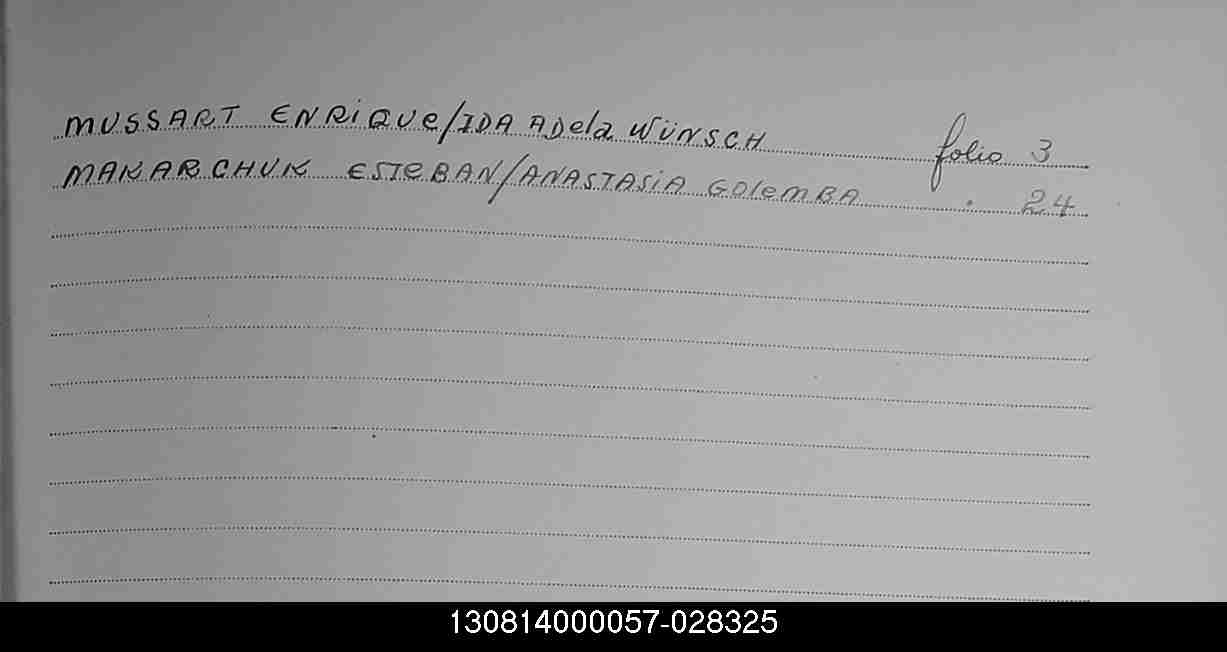 MUSSART ENRIQUE/IDA ADela WÜNSCH folio 3
MAKARCHUK ESTEBAN/ANASTASiA GOLEMBA . 24
130814000057-028325